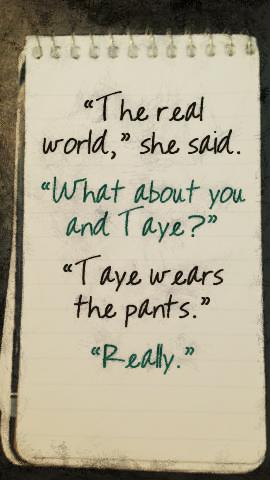 “The real
world,” she said.
“What about you
and Taye?”
“Taye wears
the pants.”
“Really.”